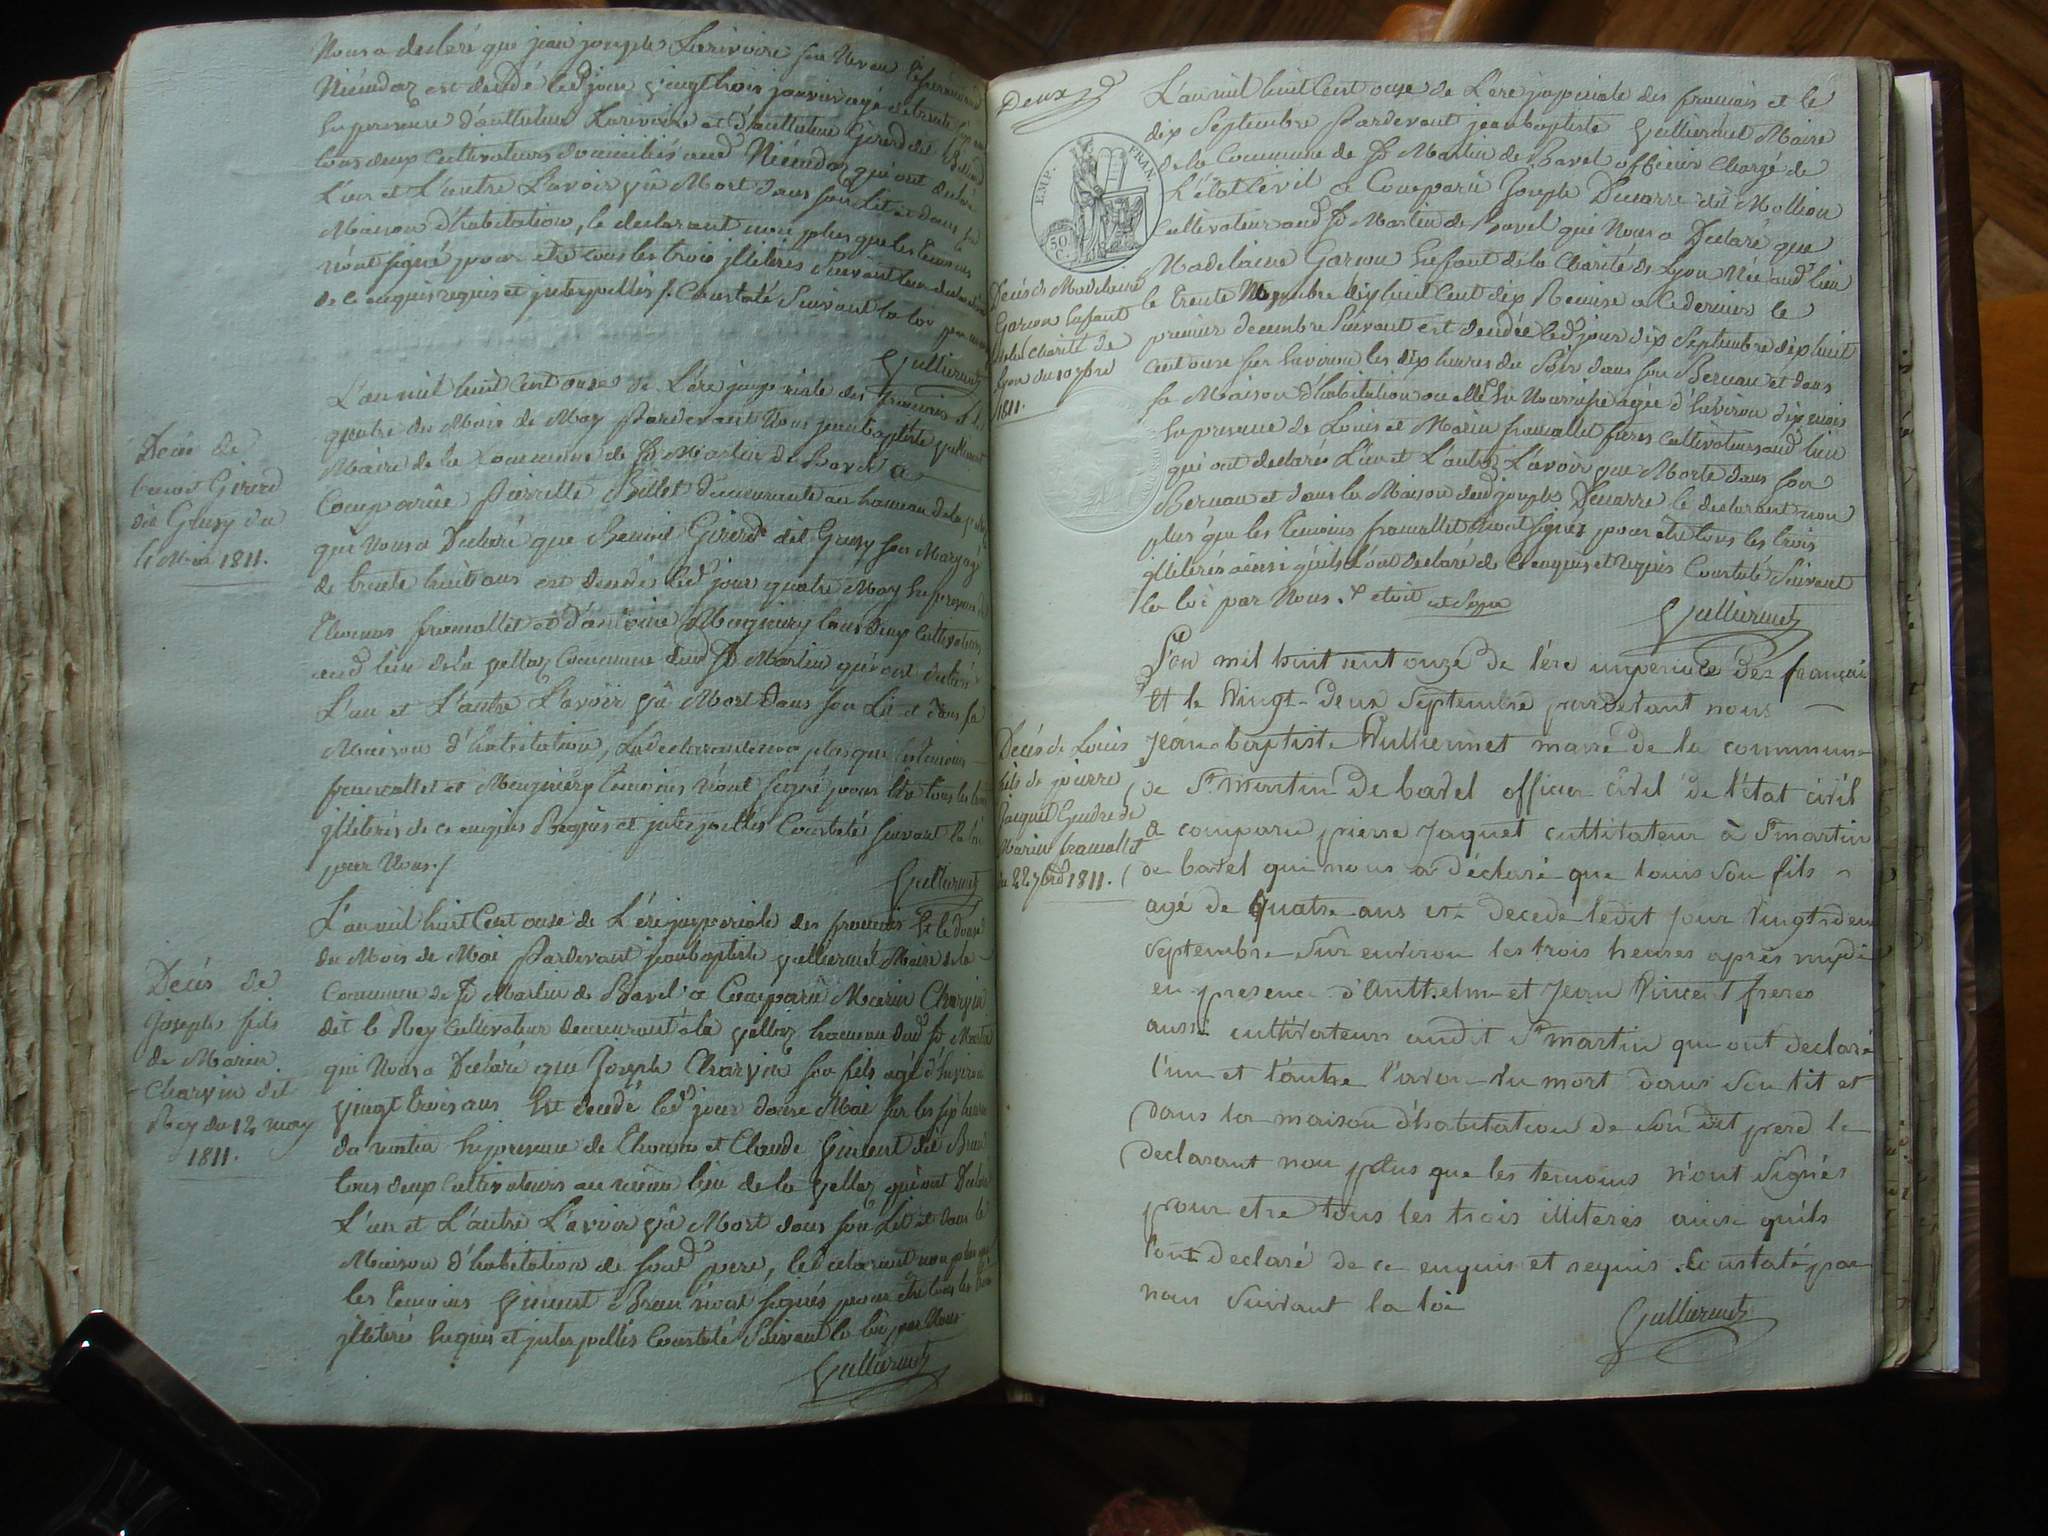 Nous a declaré que jean joseph Larivoire son Neveu
Niéudaz est decedé led. jour vingt trois janvier agé de trente
En presence d'anthelme Larivoire et d'anthelme Girerd dit Billiard
tous deux cultivateurs domiciliés aud. Niéudaz qui ont declaré
L'un et L'autre L'avoir vû Mort dans son Lit et dans sa
Maison d'habitation, le declarant non plus que les temoins
n'ont signé pour être tous les trois illiterés suivant leur declaration
de ce enquis requis et interpellés /. Constaté Suivant la loi par nous
Vulliermet
Décès de
benoit Girerd
dit Grusy du
4 Mai 1811.
L'an mil huit Cent onze de L'ére imperiale des francais et le
quatre du Mois de May Pardevant Nous jean baptiste Vulliermet
Maire de la Commune de St Martin de Bavel a
Comparûe Pierrette Billet demeurante au hameau de la Vellaz
qui Nous a Declaré que Benoit Girerd dit Grusy son Mary agé
de trente huit ans est decedé led. jour quatre May En presence de
Thomas framallet et d'antoine Mugniery tous deux Cultivateurs
aud. lieu de la Vellaz Commune dud. St Martin qui ont declaré
L'un et L'autre L'avoir vû Mort Dans son Lit et dans sa
Maison d'habitation, La declarante non plus que les temoins
framallet et Mugniery temoins n'ont signé pour être tous les trois
illiterés de ce enquis Requis et interpellés Constaté suivant la loi
par Nous./
Vulliermet
Décès de
joseph fils
de Marin
Charvin dit
Rey du 12 may
1811.
L'an mil huit Cent onze de L'ére imperiale des francais Et le douze
du Mois de Mai Pardevant jean baptiste Vulliermet Maire de la
Commune de St Martin de Bavel a Comparû Marin Charvin
dit le Rey Cultivateur demeurant à la Vellaz hameau dud. St Martin
qui Nous a Declaré que Joseph Charvin son fils agé d'Environ
Vingt trois ans Est decedé led. jour douze Mai sur les six heures
du matin En presence de Thomas et Claude Vincent dit Brun
tous deux Cultivateurs au même lieu de la Vellaz qui ont Declaré
L'un et L'autre L'avoir vû Mort dans son Lit et dans la
Maison d'habitation de sond. pere, le declarant non plus que
les temoins Vincent Brun n'ont signés pour être tous les trois
illiterés Enquis et interpellés Constaté Suivant la loi par Nous
Vulliermet
Deux
EMP. FRAN.
50 C.
L'an mil huit Cent onze de L'ere imperiale des francais et le
dix Septembre Pardevant jean baptiste Vulliermet Maire
de la Commune de St Martin de Bavel officier Chargé de
L'état Civil a Comparû Joseph Decarre dit Mollion
Cultivateur aud. St Martin de Bavel qui Nous a Declaré que
Madelaine Garcon Enfant de la Charité de Lyon Née aud. lieu
le trente Novembre dix huit Cent dix Remise a ce dernier le
premier decembre Suivant est decedée led. jour dix Septembre dix huit
cent onze sur Environ les dix heures du Soir dans son Berceau et dans
sa Maison d'habitation ou elle En Nourrisse agée d'Environ dix mois
En presence de Louis et Marin framallet freres cultivateurs aud. lieu
qui ont declarés L'un et L'autre L'avoir vue Morte dans son
Berceau et dans la Maison dud. joseph Decarre le declarant non
plus que les temoins framallet n'ont signés pour être tous les trois
illiterés ainsi qu'ils L'ont declaré de Ce enquis et requis Constaté Suivant
la loi par Nous.
Vulliermet
Décès de Madelaine
Garcon Enfant
de la Charité de
Lyon du 10 7bre
1811.
L'an mil huit cent onze de l'ére imperiale des français
et le Vingt-deux Septembre pardevant nous
Jean-baptiste Vulliermet maire de la commune
de St martin de bavel officier civil de l'état civil
a comparu pierre Jaquet cultivateur à St martin
de bavel qui nous a déclaré que louis son fils
agé de Quatre ans est decede ledit jour Vingt deux
septembre sur environ les trois heures après midi
en presence d'Anthelme et Jean Vincent freres
aussi cultivateurs audit St martin qui ont declaré
l'un et l'autre l'avoir vu mort dans son lit et
dans la maison d'habitation de son dit pere le
declarant non plus que les temoins n'ont signés
pour etre tous les trois illiterés ainsi qu'ils
l'ont declaré de ce enquis et requis. Constaté par
nous suivant la loi
Vulliermet
Décès de Louis
fils de pierre
Jacquet Gendre de
Marin framallet
du 22 7bre 1811.